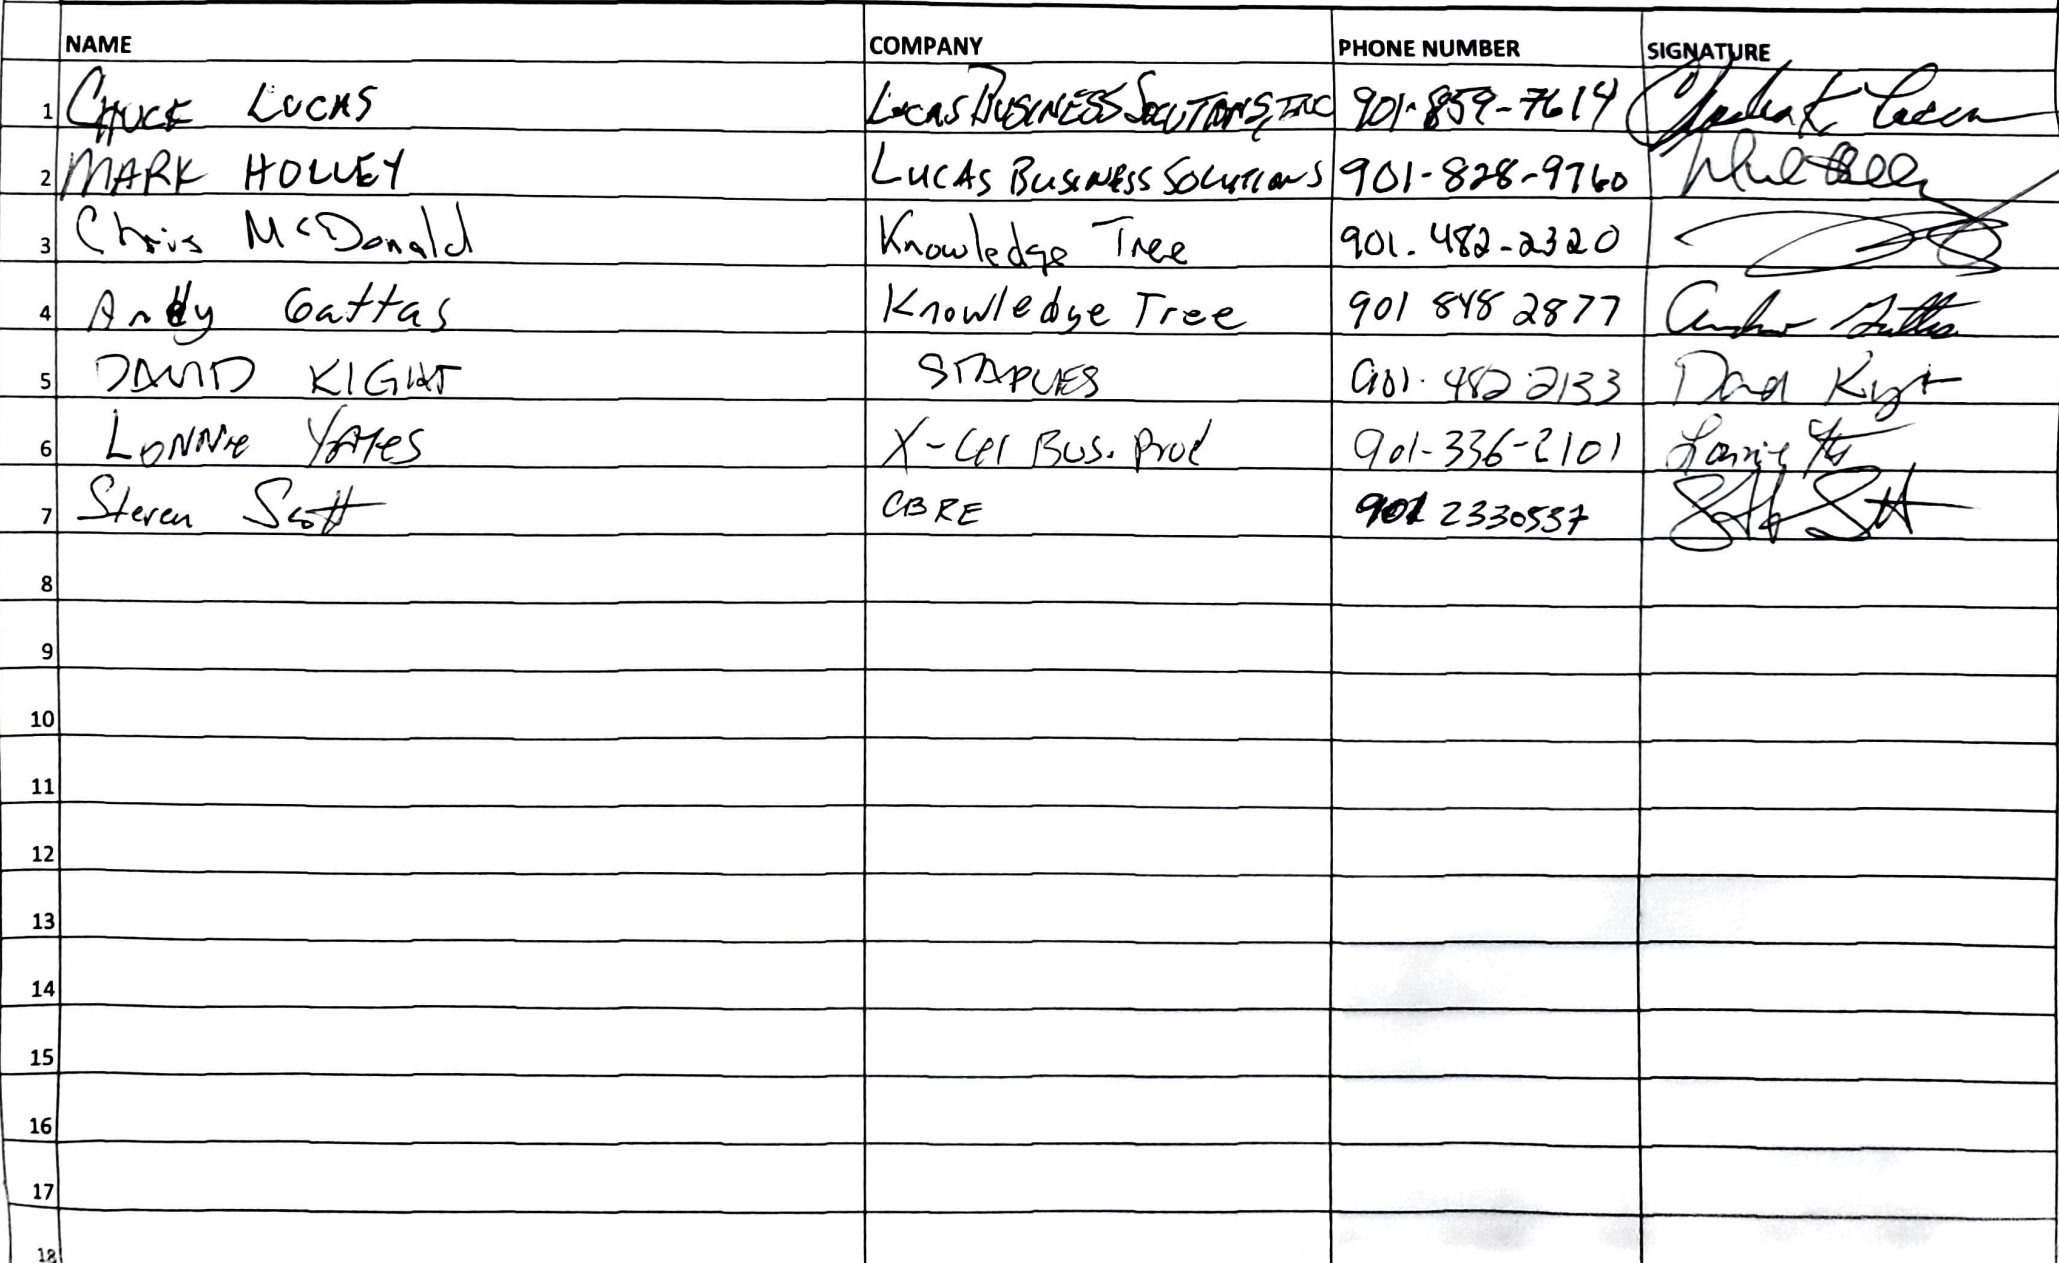 NAME COMPANY PHONE NUMBER SIGNATURE
1 CHUCK LUCAS LUCAS BUSINESS SOLUTIONS, INC 901-859-7614
2 MARK HOLLEY LUCAS BUSINESS SOLUTIONS 901-828-9760
3 Chris McDonald Knowledge Tree 901.482-2320
4 Andy Gattas Knowledge Tree 901 848 2877
5 DAVID KIGHT STAPLES 901.482 2133 David Kight
6 LONNIE YATES X-Cel Bus. Prod 901-336-2101 Lonnie
7 Steven Scott CBRE 901 2330537
8
9
10
11
12
13
14
15
16
17
18